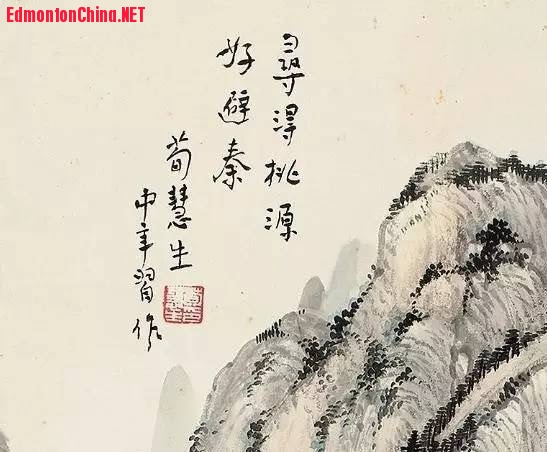 EdmontonChina.NET
尋得桃源
好避秦
荀慧生
中年習作